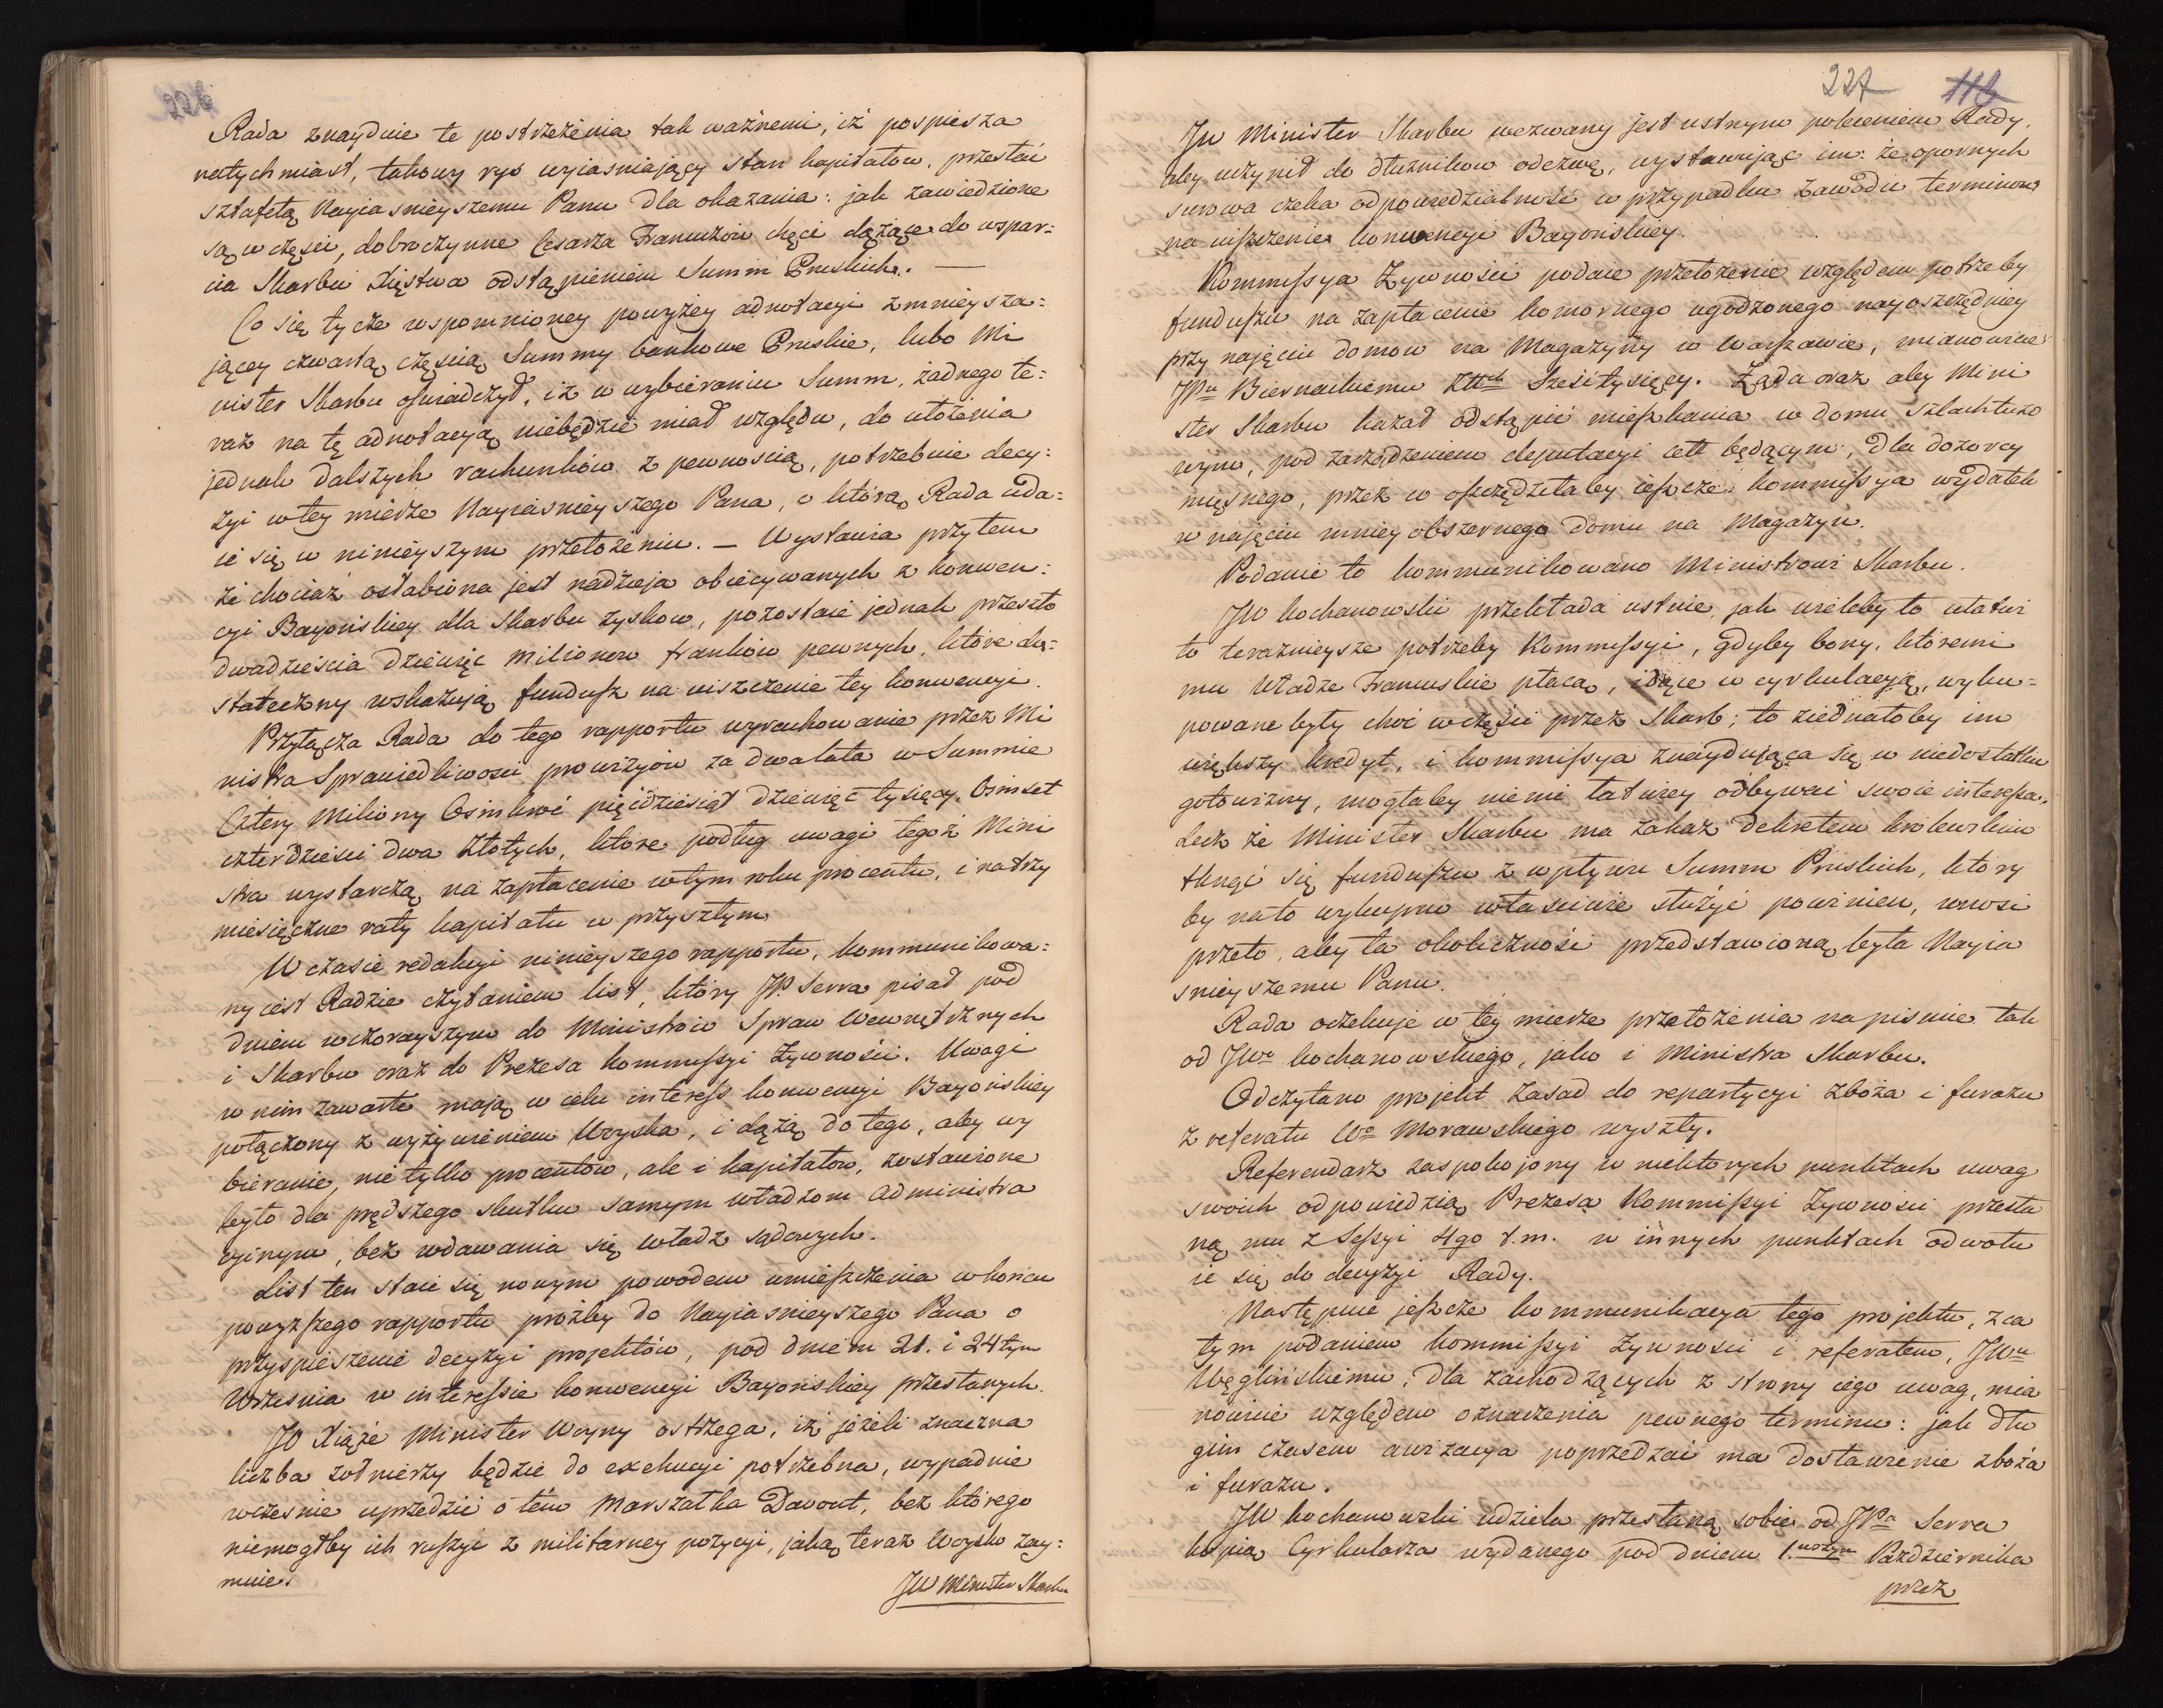 226
Rada znayduie te postrzeżenia tak ważnemi, iż pospiesza
natychmiast, takowy rys wyiasniaiący stan kapitałow, przesłać
sztafetą Nayiasnieyszemu Panu dla okazania: jak zawiedzione
są w części, dobroczynne Cesarza Francuzów chęci dążące do wspar=
cia Skarbu Xięstwa odstąpieniem Summ Pruskich. —
Co się tycze wspomnioney powyżey adnotacyi zmnieysza=
jącey czwartą częścią Summy bankowe Pruskie, lubo Mi
nister Skarbu oświadczył, iż w wybieraniu Summ, żadnego te=
raz na tę adnotacyą niebędzie miał względu, do ułożenia
jednak dalszych rachunków z pewnością, potrzebnie decy=
zyi wtey mierze Nayiasnieyszego Pana, o którą Rada uda=
ie się w ninieyszym przełożeniu. — Wystawia przytem
że chociaż osłabiona jest nadzieja obiecywanych z konwen=
cyi Bayońskiey dla Skarbu zyskow, pozostaie jednak przeszło
dwadzieścia dziewięć Milionow franków pewnych, które do=
stateczny wskazują fundusz na uiszczenie tey konwencyi.
Przyłącza Rada do tego rapportu wyrachowanie przez Mi
nistra Sprawiedliwosci prowizyów za dwa lata w Summie
Cztery Miliony Osmkroć pięćdziesiąt dziewięć tysięcy, Osmset
czterdzieści dwa Złotych, które podług uwagi tegoż Mini
stra wystarczą na zapłacenie wtym roku procentu, i na trzy
miesięczne raty kapitału w przyszłym.
W czasie redakcyi ninieyszego rapportu, kommunikowa=
ny iest Radzie czytaniem list, który JP. Serra pisał pod
dniem wczorayszym do Ministrów Spraw Wewnętrznych
i Skarbu oraz do Prezesa Kommissyi Żywności. Uwagi
w nim zawarte mają w celu interess konwencyi Bayońskiey
połączony z wyżywieniem Woyska, i dążą do tego, aby wy
bieranie, nie tylko procentów, ale i kapitałow, zostawione
było dla prędszego skutku samym władzom Administra
cyinym, bez wdawania się władz sądowych.
List ten staie się nowym powodem umieszczenia w końcu
powyższego rapportu prożby do Nayiasnieyszego Pana o
przyspieszenie decyzyi projektów, pod dniem 21. i 24tym
Wrzesnia w interessie konwencyi Bayońskiey przesłanych.
JO Xiąże Minister Woyny ostrzega, iż jeżeli znaczna
liczba żołnierzy będzie do exekucyi potrzebna, wypadnie
wczesnie uprzedzić o tém Marszałka Davout, bez którego
niemogłby ich ruszyć z militarney pozycyi, jaką teraz Woysko zay=
muie.
JW Minister Skarbu
227 113
JW Minister Skarbu wezwany jest ustnym poleceniem Rady,
aby uczynił do dłużnikow odezwę, wystawiając im: że opornych
surowa czeka odpowiedzialność w przypadku zawodu terminow
na uiszczenie konwencyi Bayońskiey.
Kommissya Żywności podaie przełożenie względem potrzeby
funduszu na zapłacenie komornego ugodzonego nayoszczędniey
przy najęciu domow na Magazyny w Warszawie, mianowicie
JPu Biernackiemu Złtch Sześćtysięcy. Żąda oraz aby Mini
ster Skarbu kazał odstąpić mieszkania w domu szlachtuzo
wym, pod zarządzeniem deputacyi cett będącym, dla dozorcy
mięsnego, przez co oszczędziłaby ieszcze kommissya wydatek
w najęciu mniey obszernego domu na Magazyn.
Podanie to kommunikowano Ministrowi Skarbu.
JW Kochanowski przekłada ustnie, jak wieleby to ułatwi
ło teraznieysze potrzeby Kommissyi, gdyby bony, któremi
mu Władze Francuskie płacą, idące w cyrkulacyą, wyku=
powane były choć w części przez Skarb; to ziednałoby im
większy kredyt, i kommissya znaydująca się w niedostatku
gotowizny, mogłaby niemi łatwiey odbywać swoie interessa.
Lecz że Minister Skarbu ma zakaz dekretem krolewskim
tknąć się funduszu z wpływu Summ Pruskich, który
by na to wykupno właściwie służyć powinien, wnosi
przeto, aby ta okoliczność przedstawioną była Nayia
snieyszemu Panu.
Rada oczekuje w tey mierze przełożenia na pismie tak
od JWo Kochanowskiego, jako i Ministra Skarbu.
Odczytano projekt zasad do repartycyi zboża i furażu
z referatu Wo Morawskiego wyszły.
Referendarz zaspokojony w niektorych punktach uwag
swoich odpowiedzią Prezesa Kommissyi Żywności przesła
ną mu z Sessyi 4go t.m. w innych punktach odwołu
ie się do decyzyi Rady.
Następuie jeszcze kommunikacya tego projektu, z ca
łym podaniem kommissyi Żywnosci i referatem, JWu
Węglińskiemu, dla zachodzących z strony iego uwag, mia
nowicie względem oznaczenia pewnego terminu: jak dłu
gim czasem awizacya poprzedzać ma dostawienie zboża
i furażu.
JW Kochanowski udziela przesłaną sobie od JPa Serra
kopią Cyrkularza wydanego pod dniem 1.wszym Października
przez